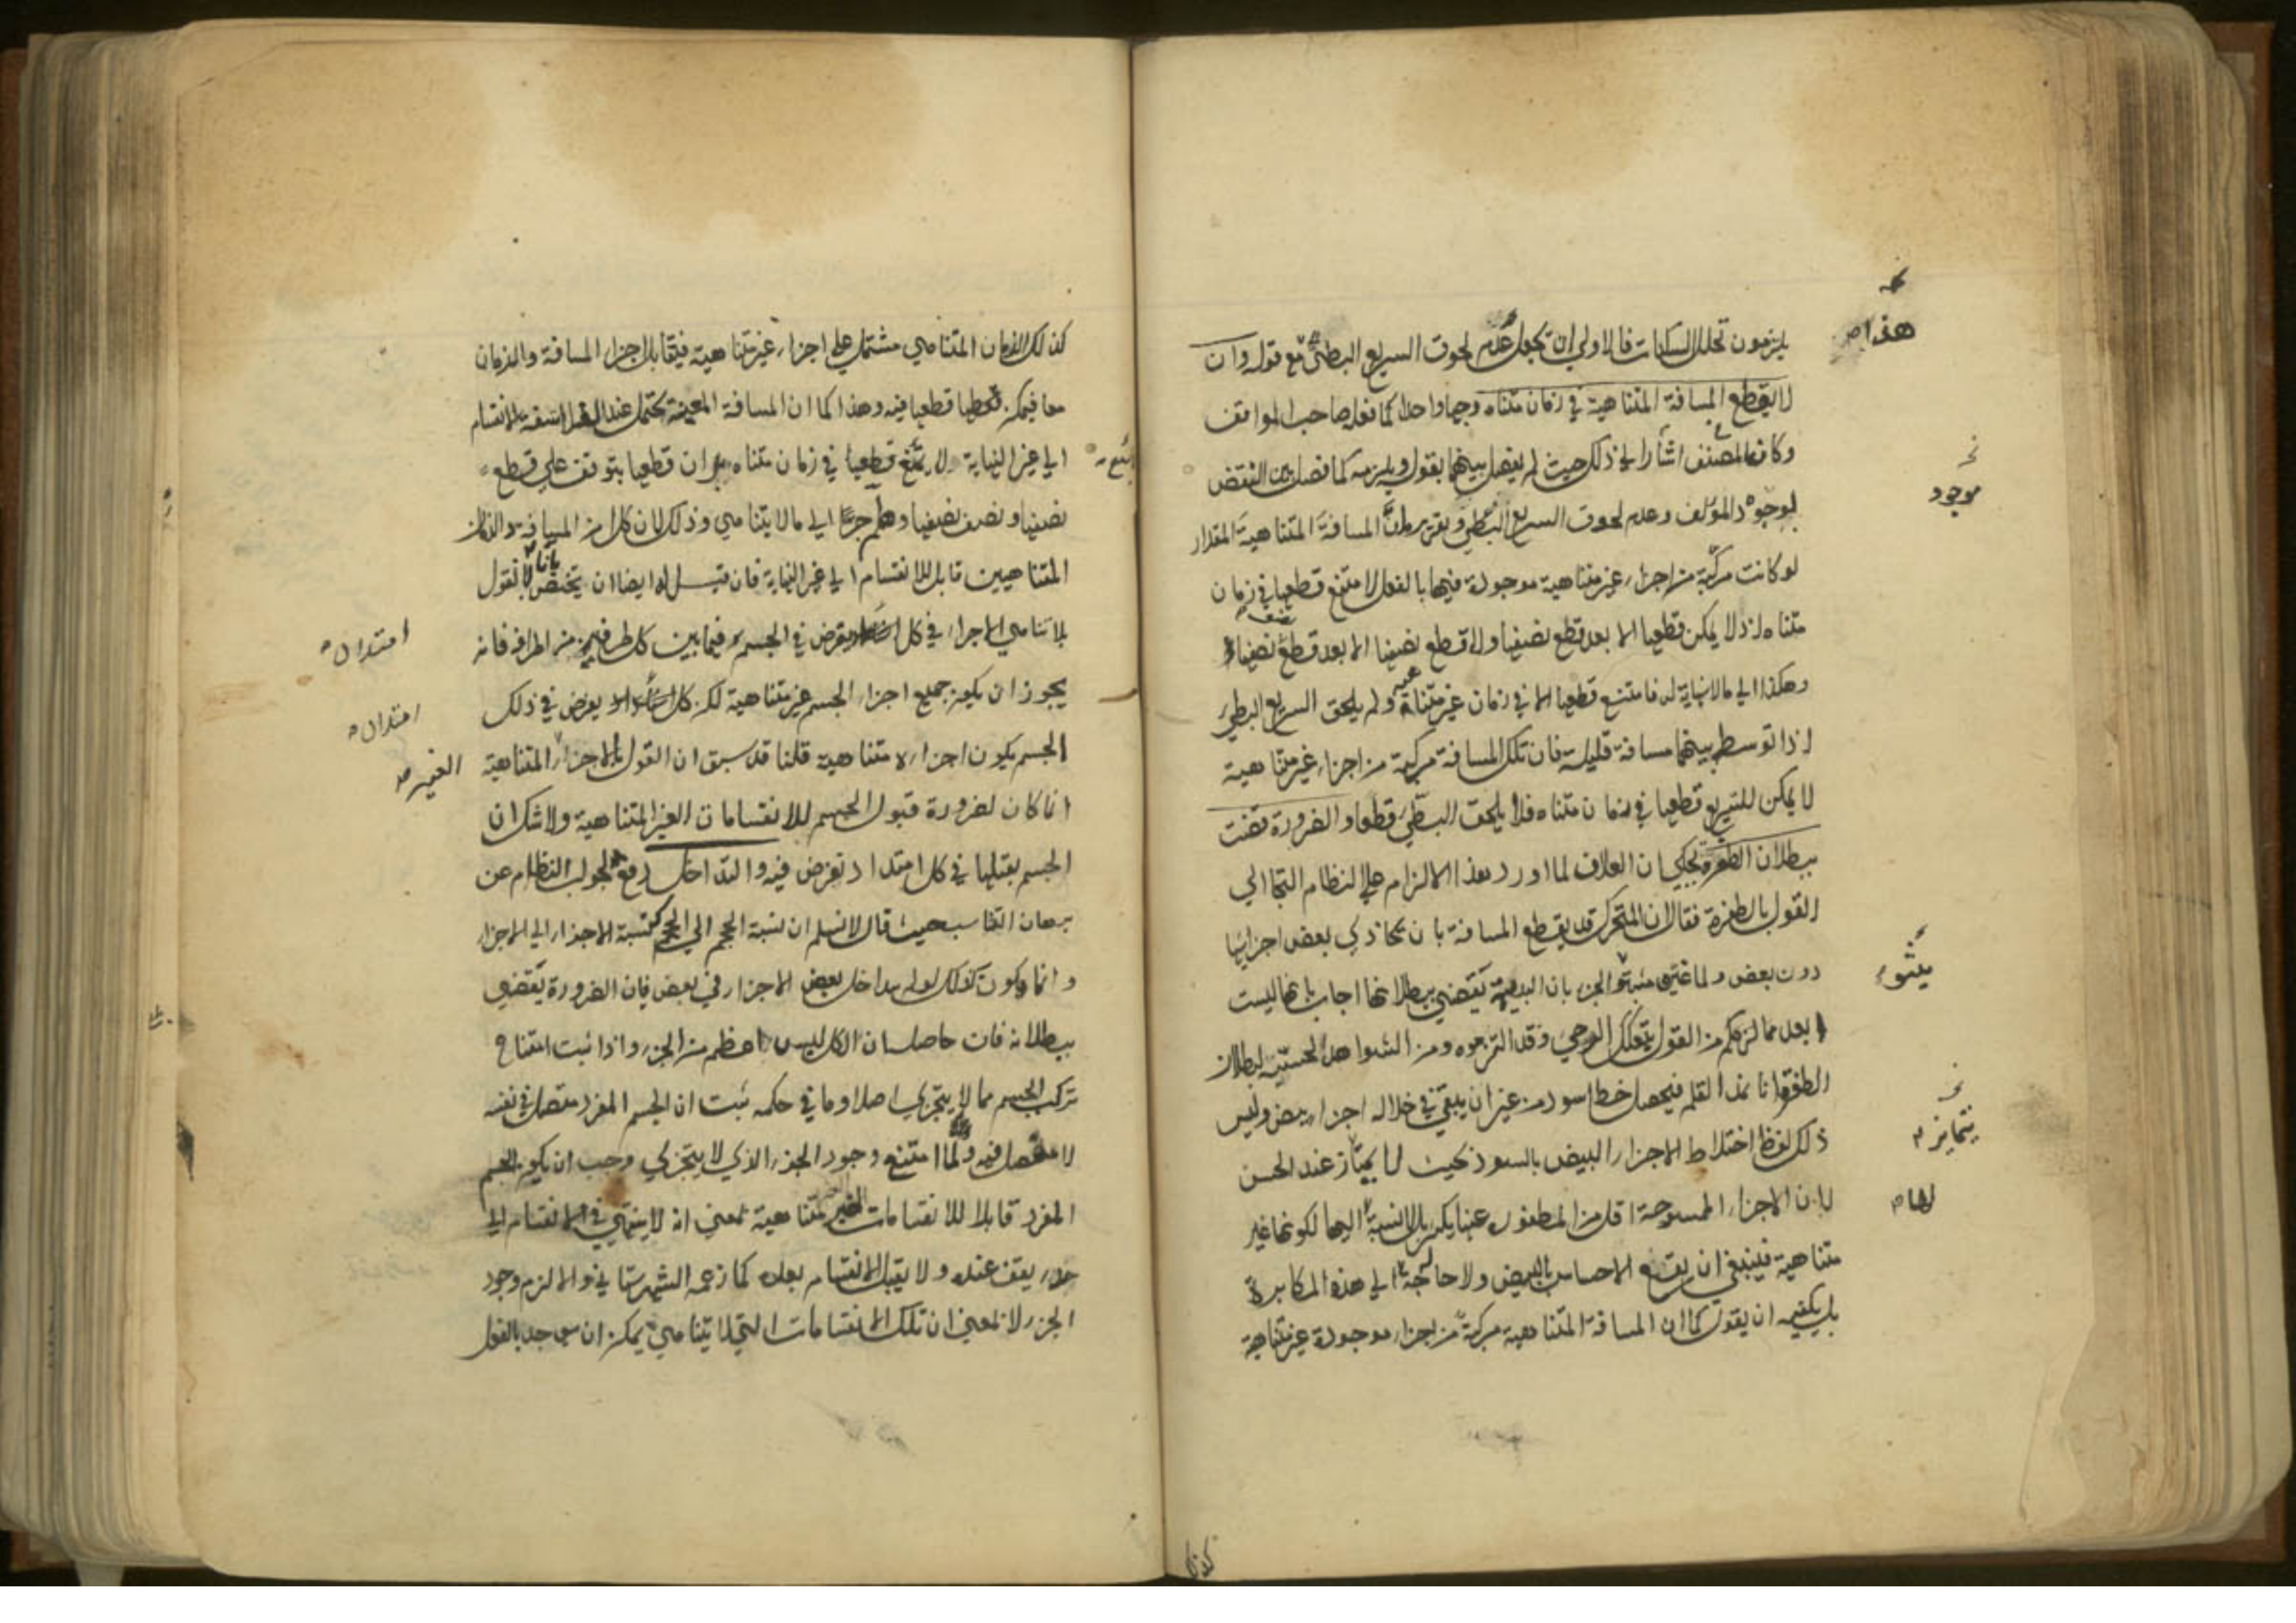 يلزمون تخلل السكنات فالاولى ان يجعل عدم لحوق السريع البطئ مع قوله وان
لا يقطع المسافة المتناهية في زمان متناه وجها واحدا كما فعله صاحب المواقف
وكان المصنف اشار الى ذلك حيث لم يفصل بينهما بقوله ويلزمه كما فصل بين النقض
بوجود المؤلف وعدم لحوق السريع البطئ وتقريره ان المسافة المتناهية المقدار
لو كانت مركبة من اجزاء غير متناهية موجودة فيها بالفعل لامتنع قطعها في زمان
متناه اذ لا يمكن قطعها الا بعد قطع نصفها ولا قطع نصفها الا بعد قطع نصف نصفها
وهكذا الى ما لا نهاية له فامتنع قطعها الا في زمان غير متناه ولم يلحق السريع البطئ
اذا توسط بينهما مسافة قليلة فان تلك المسافة مركبة من اجزاء غير متناهية
لا يمكن للسريع قطعها في زمان متناه فلا يلحق البطئ قطعا والضرورة قضت
ببطلان الطفرة يحكى ان العلاف لما اورد هذا الالزام على النظام التجا الى
القول بالطفرة فقال ان المتحرك قد يقطع المسافة بان يحاذي بعض اجزائها
دون بعض ولما مثبتو الجزء بان البديهة تقتضي ببطلانها اجاب بانها ليست
ابعد مما لزمكم من القول بتفكك الرحى وقد التزموه ومن الشواهد الحسية لبطلان
الطفرة انا نمد القلم فيحصل خط اسود من غير ان يبقى في خلاله اجزاء بيض وليس
ذلك لفرط اختلاط الاجزاء البيض بالسود بحيث لا يمتاز عند الحس
لان الاجزاء الممسوحة اقل من المطفور عنها بكثير بل لا نسبة اليها لكونها غير
متناهية فينبغي ان يقع الاحساس بالبيض ولا حاجة الى هذه المكابرة
بل يكفيه ان يقول كما ان المسافة المتناهية مركبة من اجزاء موجودة غير متناهية
هذا
موجود
مثبتو
يتمايز
لها
كذلك
كذلك الزمان المتناهي مشتمل على اجزاء غير متناهية فيتقابل اجزاء المسافة والزمان
معا فيمكن قطعها فيه وهذا كما ان المسافة المعينة يحتمل عند الانقسام
الى غير النهاية ولا يمتنع قطعها في زمان متناه مع ان قطعها يتوقف على قطع
نصفها ونصف نصفها وهلم جرا الى ما لا يتناهي وذلك لان كلا من المسافة والزمان
المتناهيين قابل للانقسام الى غير النهاية فان قيل له ايضا ان يختص بانا لا نقول
بلا تناهي الاجزاء في كل يفرض في الجسم فيما بين كل طرفين من اطرافه فانه
يجوز ان يكون جميع اجزاء الجسم غير متناهية لكن كل يفرض في ذلك
الجسم يكون اجزاءه متناهية قلنا قد سبق ان القول بالاجزاء المتناهية
انما كان لضرورة قبول الجسم للانقسامات الغير المتناهية ولا شك ان
الجسم يقبلها في كل امتداد تفرض فيه والتداخل دفع لجواب النظام عن
برهان التناسب حيث قال لا نسلم ان نسبة الحجم الى الحجم كنسبة الاجزاء الى الاجزاء
وانما يكون كذلك لو لم يتداخل بعض الاجزاء في بعض فان الضرورة تقضي
ببطلانه فان حاصله ان الكل ليس اعظم من الجزء واذا ثبت امتناع
تركب الجسم مما لا يتجزى اصلا وما في حكمه ثبت ان الجسم المفرد متصل في نفسه
لا مفصل فيه ولما امتنع وجود الجزء الذي لا يتجزى وجب ان يكون الجسم
المفرد قابلا للانقسامات الغير متناهية بمعنى انه لا ينتهي في الانقسام الى
حد يقف عنده ولا يقبل الانقسام بعده كما زعمه الشهرستاني والا لزم وجود
الجزء لا بمعنى ان تلك الانقسامات التي لا تتناهى يمكن ان توجد بالفعل
امتداد
امتداد
الغير